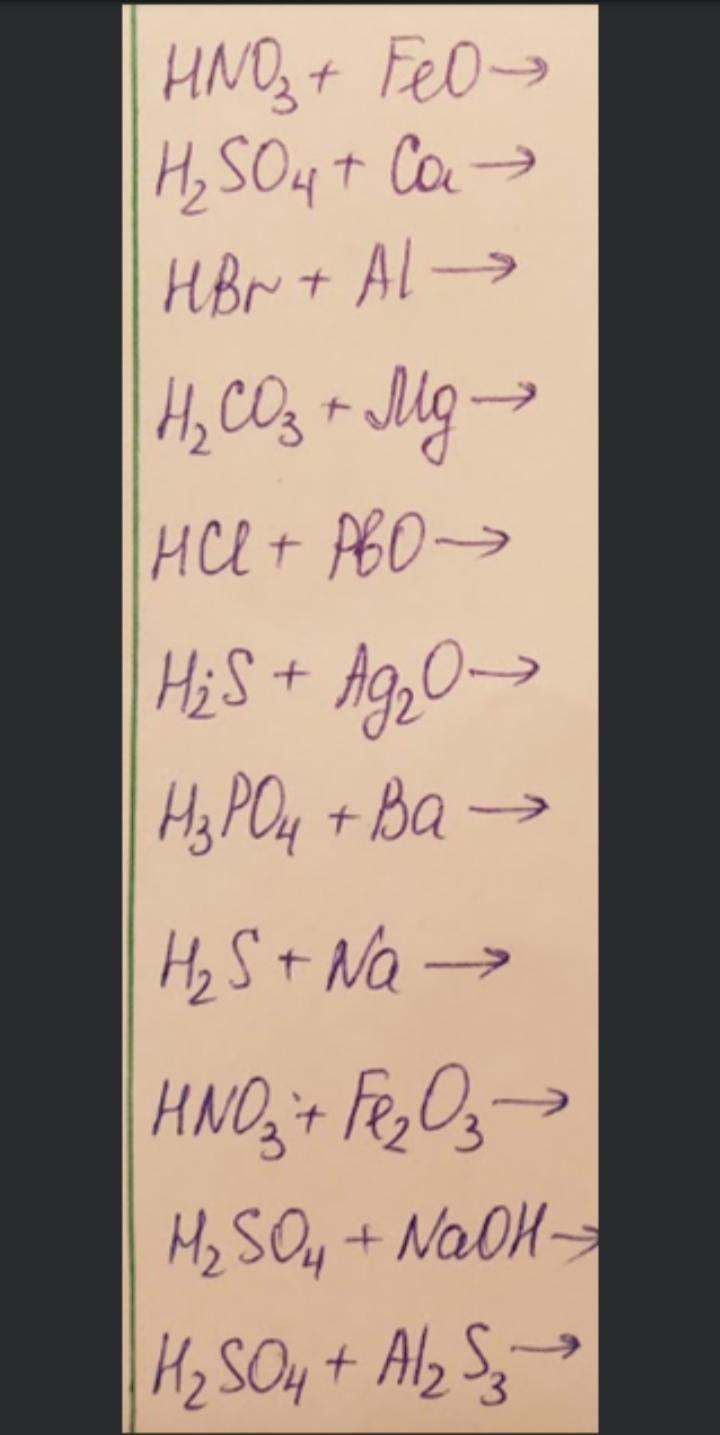 HNO₃ + FeO →
H₂SO₄ + Ca →
HBr + Al →
H₂CO₃ + Mg →
HCl + PbO →
H₂S + Ag₂O →
H₃PO₄ + Ba →
H₂S + Na →
HNO₃ + Fe₂O₃ →
H₂SO₄ + NaOH →
H₂SO₄ + Al₂S₃ →